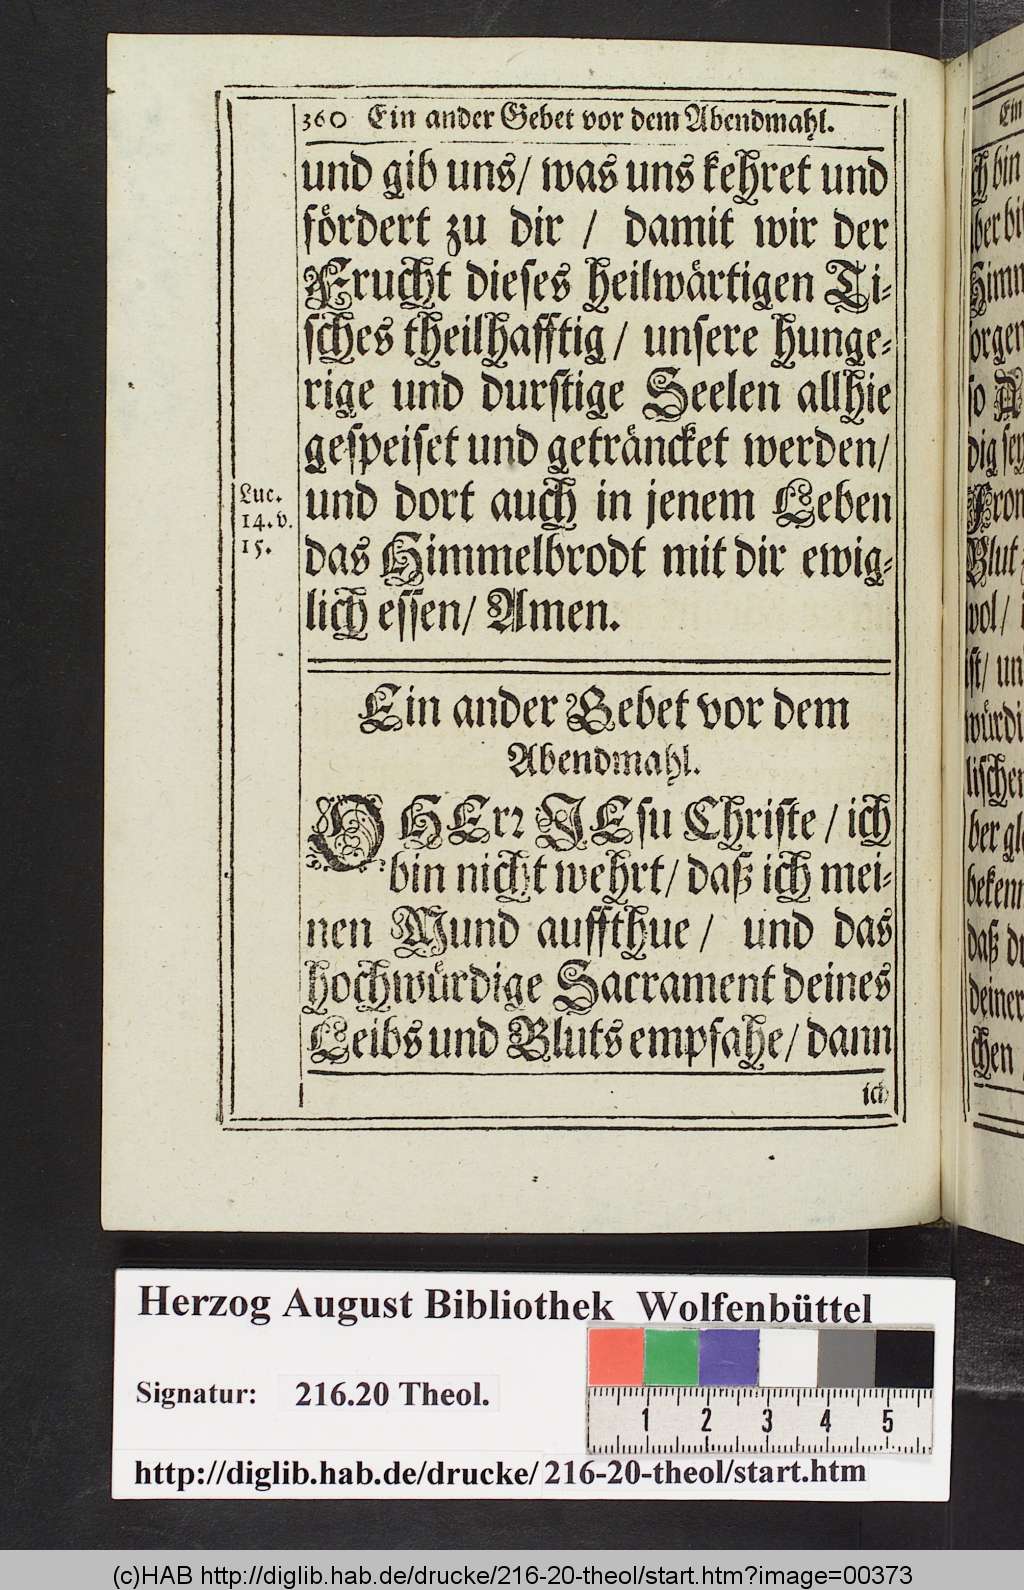 360 Ein ander Gebet vor dem Abendmahl.
und gib uns/ was uns kehret und
fördert zu dir / damit wir der
Frucht dieses heilwärtigen Ti-
sches theilhafftig / unsere hunge-
rige und durstige Seelen allhie
gespeiset und geträncket werden/
Luc.
14. v.
15.
und dort auch in jenem Leben
das Himmelbrodt mit dir ewig-
lich essen/ Amen.
Ein ander Gebet vor dem
Abendmahl.
O HErr JEsu Christe / ich
bin nicht wehrt/ daß ich mei-
nen Mund auffthue / und das
hochwürdige Sacrament deines
Leibs und Bluts empfahe/ dann
ich
Ein
ch bin
ber bi
Himm
orgen
so A
dig sey
Fron
Blut
wol/
ist/ un
würdi
lischen
ber gl
bekenn
daß du
deiner
chen
Herzog August Bibliothek Wolfenbüttel
Signatur: 216.20 Theol.
1 2 3 4 5
http://diglib.hab.de/drucke/216-20-theol/start.htm
(c)HAB http://diglib.hab.de/drucke/216-20-theol/start.htm?image=00373